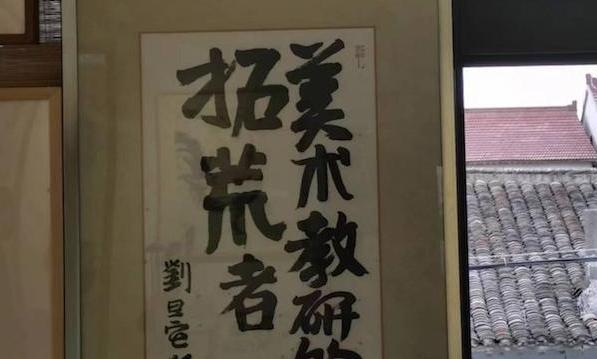 美术教研的
拓荒者
劉旦宅